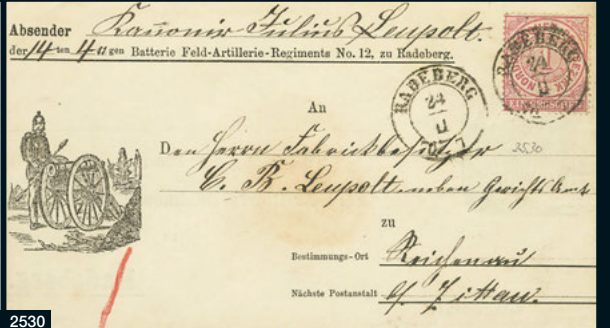 Absender Kanonir Julius Leupolt.
der 14 ten 4 u gen Batterie Feld-Artillerie-Regiments No. 12, zu Radeberg.
RADEBERG
24
II
RADEBERG
24
II
An
Den Herrn Fabrickbesitzer
2530
C. B. Leupolt. neben Gerichts Amt
zu
Bestimmungs-Ort Reichenau
Nächste Postanstalt b/ Zittau.
2530